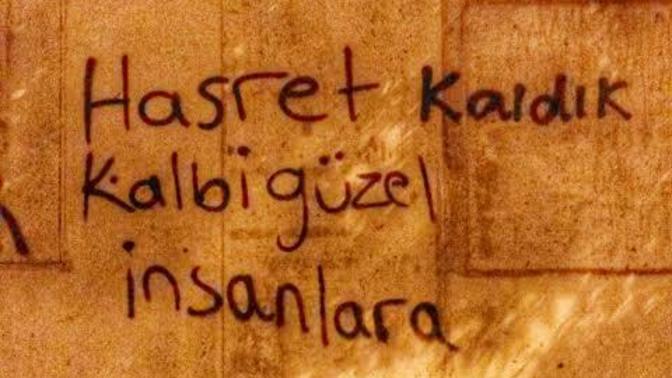 Hasret Kaldık
Kalbi güzel
insanlara